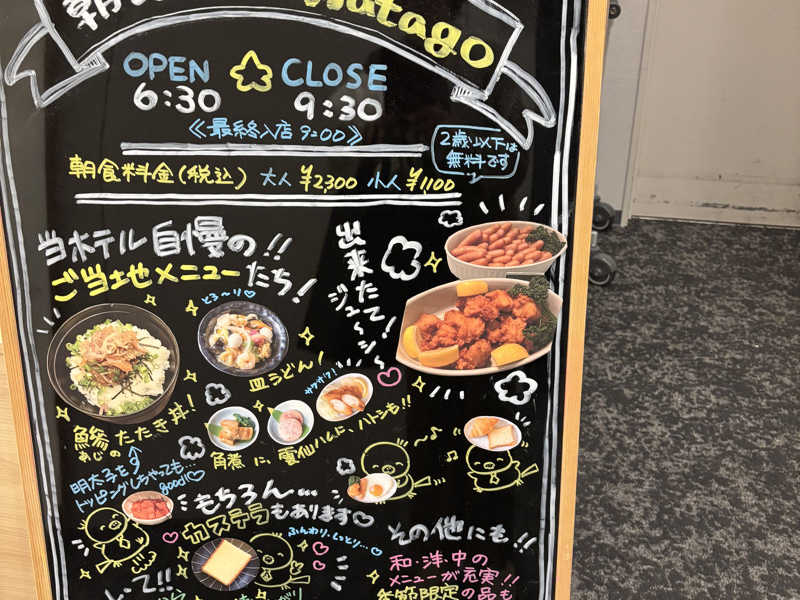 朝
Watago
OPEN CLOSE
6:30 9:30
≪最終入店 9:00≫
2歳以下は
無料です
朝食料金(税込) 大人 ¥2300 小人 ¥1,100
当ホテル自慢の!!
ご当地メニューたち!
出来たて!
ジューシー
とろ〜り♡
皿うどん!
サクサク!
鯵たたき丼!
あじの
角煮に、雲仙ハムに、ハトシも!!
明太子を
トッピングしちゃっても…
good!!♡
もちろん…
カステラもあります♡
ふんわり、しっとり…♡
その他にも!!
和・洋・中の
メニューが充実!!
季節限定の品も